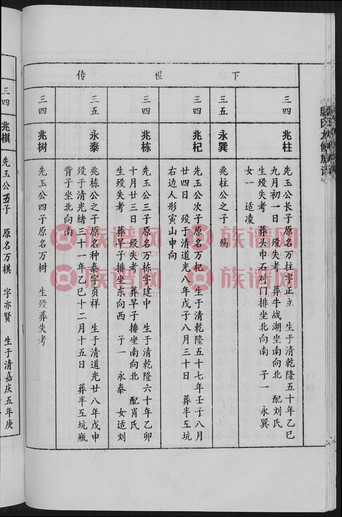 下世传
三四 兆柱
先玉公长子原名万柱字正立 生于清乾隆五十年乙巳
九月初一日 殁失考 葬牛战湖坐南向北 配刘氏
生殁失考 葬头巾石对门排坐北向南 子一 永巽
女一 适凌
三五 永巽
兆柱公之子 殇
三四 兆杞
先玉公次子原名万杞 生于清乾隆五十七年壬子八月
廿四日 殁于清道光八年戊子八月三十日 葬半互坑
右边人形寅山申向
三四 兆栋
先玉公三子原名万栋字建中 生于清乾隆六十年乙卯
十月廿三日 殁失考 葬早子排坐南向北 配肖氏
生殁失考 葬早子排坐东向西 子一 永泰 女适刘
三五 永泰
兆栋公之子原名种泰字贞祥 生于清道光廿八年戊申
殁于清光绪三十一年乙巳十二月十五日 葬半互坑瓶
背子坐北向南
三四 兆树
先玉公四子原名万树 生殁葬失考
三四 兆棋
先玉公 子 原名万棋 字亦贤 生于清嘉庆五年庚